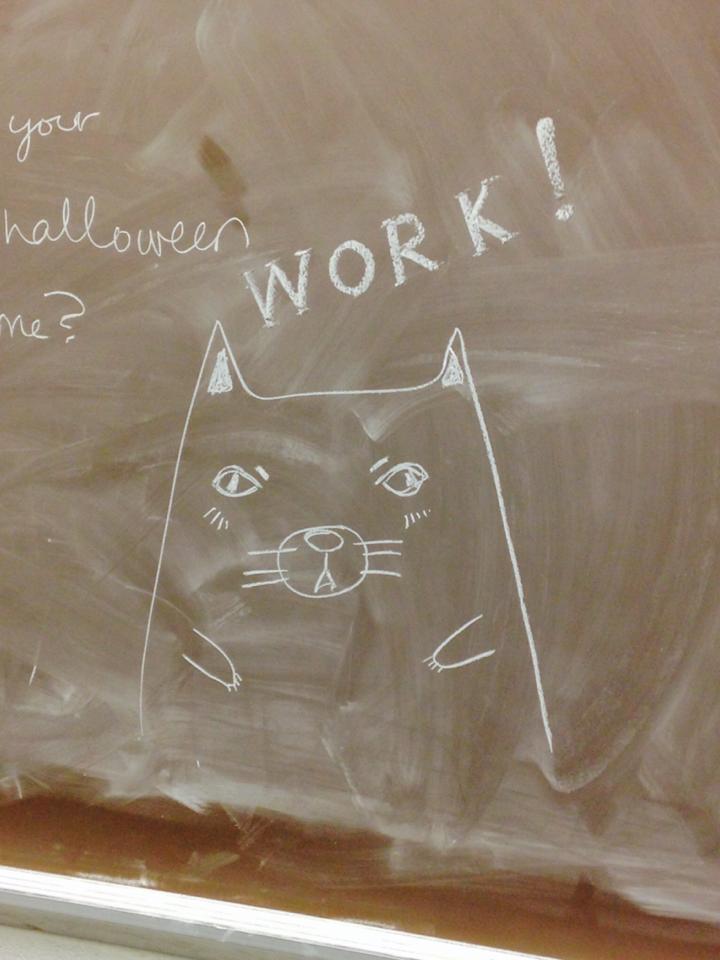 your
halloween
me?
WORK!